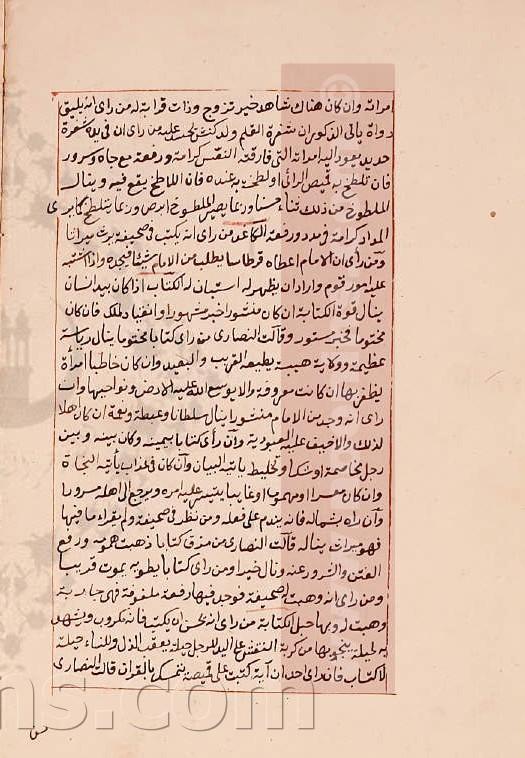 امراته وان كان هناك شاهد خير تزوج وذات قرابة له من راى انه يليق
دواة ياتى الذكور ان شفرة القلم ولد كيس من راى ان فى يده شفرة
حديد يعود اليه امراته التى فارقته النقس كرامة ورفعة مع جاه وسرور
فان تلطخ به قميص الرائى او لطخه به عنده فان اللاطخ يقع فيه وينال
الملطوخ من ذلك ثناء حسنا وربما يصير الملطوخ ابرص وربما يتلطخ كما يرى
المداد كرامة فى مدد ورفعة الكاغد من راى انه يكتب فى صحيفة يرث ميراثا
ومن راى ان الامام اعطاه قرطاسا يطلب من الامام شيئا فيجده واذا اشتبه
عليه امور قوم وارادان يظهر له استبان له الكتاب اذا كان بيد انسان
ينال قوة الكتابة ان كان منشورا خبر مشهور او انقياد لملك فان كان
مختوما فخبر مستور وقالت النصارى من راى كتابا مختوما ينال رياسة
عظيمة وولاية هيبة يطيعه القريب والبعيد وان كان خاطبا امرأة
يظفر بها ان كانت معروفة والا يوسع الله عليه الارض ونواحيها وان
راى انه وجد من الامام منشورا ينال سلطانا وغبطة ونعمة ان كان اهلا
لذلك والا خيف عليه العبودية وان رأى كتابا بيمينه وكان بينه وبين
رجل مخاصمة او شك او تخليط ياتيه البيان وان كان فى عذاب يأتيه النجاة
وان كان معسرا او مهموما او غايبا يتيسر عليه امره ويرجع الى اهله مسرورا
وان راه بشماله فانه يندم على فعله ومن نظر فى صحيفة ولم يقراء ما فيها
فهو ميراث يناله قالت النصارى من مزق كتابا ذهبت همومه ورفع
الفتن والشرور عنه ونال خيرا ومن راى كتابا يطويه يموت قريبا
ومن راى انه وهبت له صحيفة فوجد فيها رقعة ملفوفة فهى جارية
وهبت له وبها حبل الكتابة من راى انه يحسن ان يكتب فانه مكروب ويشهد
به لحيلة ينجو بها من كربة النقش على اليد للرجل حيلة يعقب الذل وللنساء حيلة
لاكتساب فان راى احد ان آية كتبت على قميصه يتمسك بالقران قالت النصارى
ns.com